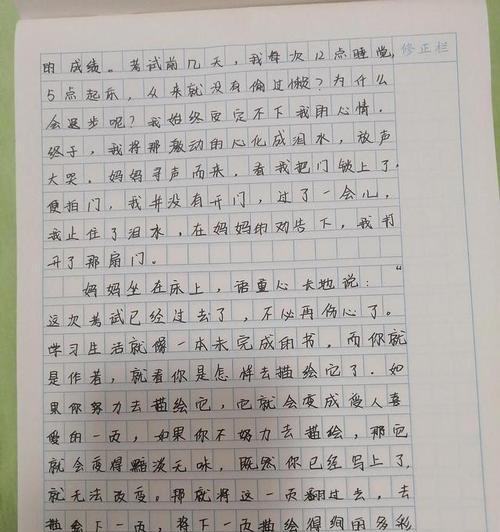 的成绩。考试前几天，我每次12点睡觉，
修正栏
5点起床，从来就没有偷过懒？为什么
会退步呢？我始终安定不下我的心情。
终于，我将那激动的心化成泪水，放声
大哭。妈妈寻声而来，看我把门锁上了，
便拍门，我并没有开门，过了一会儿，
我止住了泪水，在妈妈的劝告下，我打
开了那扇门。
妈妈坐在床上，语重心长地说：“
这次考试已经过去了，不必再伤心了。
学习生活就像一本未完成的书，而你就
是作者，就看你是怎样去描绘它了。如
果你努力去描绘它，它就会变成受人喜
爱的一页，如果你不努力去描绘，那它
就会变得黯淡无味，既然你已经写上了，
就无法改变。那就将这一页翻过去，去
描绘下一页，将下一页描绘得绚丽多彩